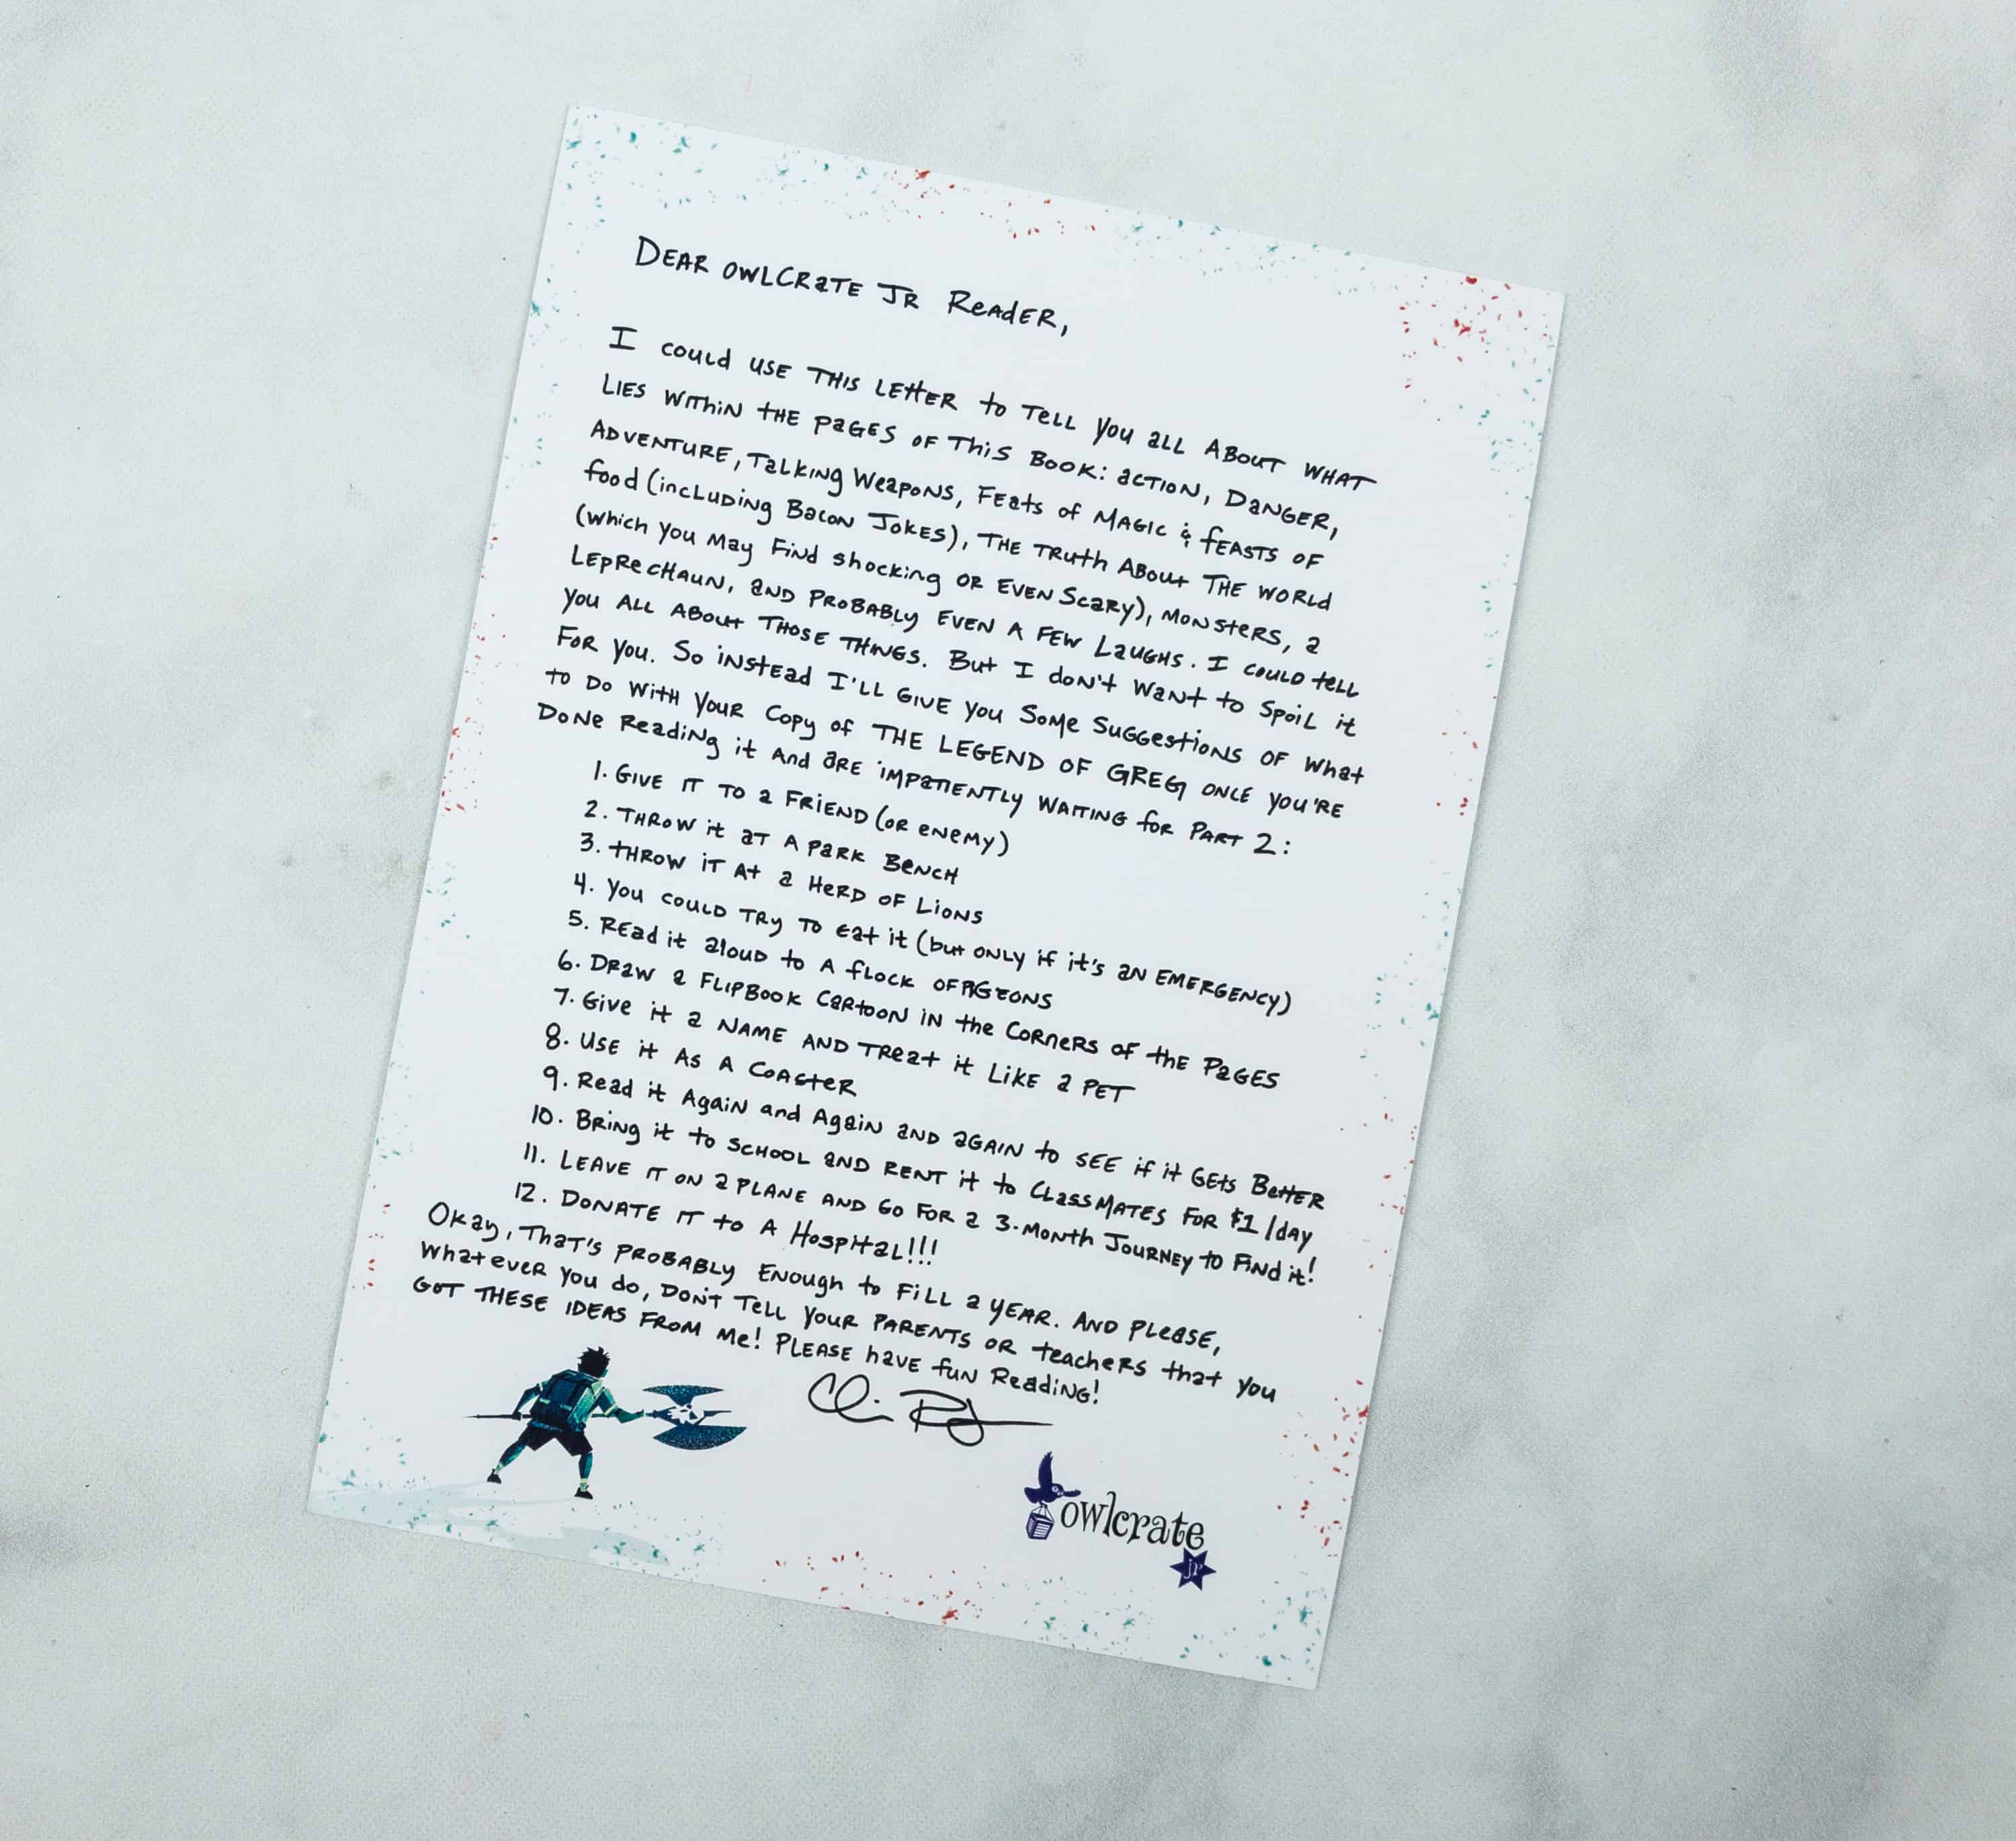 DEAR OWLCRATE JR READER,
I COULD USE THIS LETTER TO TELL YOU ALL ABOUT WHAT
LIES WITHIN THE PAGES OF THIS BOOK: ACTION, DANGER,
ADVENTURE, TALKING WEAPONS, FEATS OF MAGIC & FEASTS OF
FOOD (INCLUDING BACON JOKES), THE TRUTH ABOUT THE WORLD
(WHICH YOU MAY FIND SHOCKING OR EVEN SCARY), MONSTERS, A
LEPRECHAUN, AND PROBABLY EVEN A FEW LAUGHS. I COULD TELL
YOU ALL ABOUT THOSE THINGS. BUT I DON'T WANT TO SPOIL IT
FOR YOU. SO INSTEAD I'LL GIVE YOU SOME SUGGESTIONS OF WHAT
TO DO WITH YOUR COPY OF THE LEGEND OF GREG ONCE YOU'RE
DONE READING IT AND ARE IMPATIENTLY WAITING FOR PART 2:
1. GIVE IT TO A FRIEND (OR ENEMY)
2. THROW IT AT A PARK BENCH
3. THROW IT AT A HERD OF LIONS
4. YOU COULD TRY TO EAT IT (BUT ONLY IF IT'S AN EMERGENCY)
5. READ IT ALOUD TO A FLOCK OF PIGEONS
6. DRAW A FLIPBOOK CARTOON IN THE CORNERS OF THE PAGES
7. GIVE IT A NAME AND TREAT IT LIKE A PET
8. USE IT AS A COASTER
9. READ IT AGAIN AND AGAIN AND AGAIN TO SEE IF IT GETS BETTER
10. BRING IT TO SCHOOL AND RENT IT TO CLASSMATES FOR $1/DAY
11. LEAVE IT ON A PLANE AND GO FOR A 3-MONTH JOURNEY TO FIND IT!
12. DONATE IT TO A HOSPITAL!!!
OKAY, THAT'S PROBABLY ENOUGH TO FILL A YEAR. AND PLEASE,
WHATEVER YOU DO, DON'T TELL YOUR PARENTS OR TEACHERS THAT YOU
GOT THESE IDEAS FROM ME! PLEASE HAVE FUN READING!
owlcrate
jr